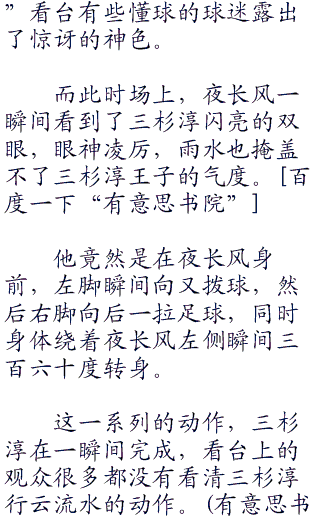 ”看台有些懂球的球迷露出
了惊讶的神色。
而此时场上，夜长风一
瞬间看到了三杉淳闪亮的双
眼，眼神凌厉，雨水也掩盖
不了三杉淳王子的气度。[百
度一下“有意思书院”]
他竟然是在夜长风身
前，左脚瞬间向又拨球，然
后右脚向后一拉足球，同时
身体绕着夜长风左侧瞬间三
百六十度转身。
这一系列的动作，三杉
淳在一瞬间完成，看台上的
观众很多都没有看清三杉淳
行云流水的动作。(有意思书